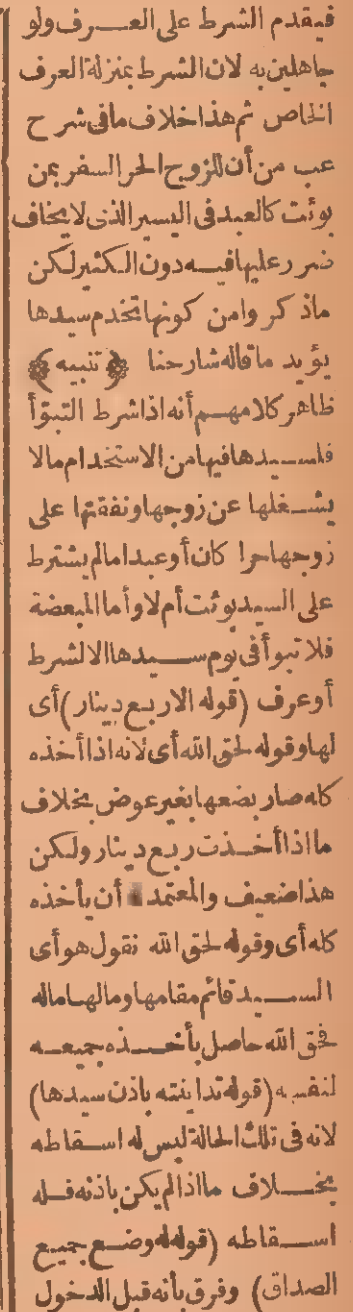 فيقدم الشرط على العرف ولو
جاهلين به لان الشرط بمنزلة العرف
الخاص ثم هذا خلاف ما فى شرح
عب من أن للزوج الحر السفر بمن
بوئت كالعبد فى اليسير الذى لا يخاف
ضرر عليها فيه دون الكثير لكن
ماذكروا من كونها تخدم سيدها
يؤيد ما قاله شارحنا ﴿تنبيه﴾
ظاهر كلامهم أنه اذا شرط التبوّأ
فلسيدها فيها من الاستخدام مالا
يشغلها عن زوجها ونفقتها على
زوجها حرا كان أو عبدا مالم يشترط
على السيد بوئت أم لا وأما المبعضة
فلا تبوأ فى يوم سيدها الا لشرط
أو عرف (قوله الا ربع دينار) أى
لها وقوله لحق الله أى لانه اذا أخذه
كله صار بضعها بغير عوض بخلاف
ما اذا أخذت ربع دينار ولكن
هذا ضعيف والمعتمد أن يأخذه
كله أى وقوله لحق الله نقول هو أى
السيد قائم مقامها ومالها ماله
فحق الله حاصل بأخذه جميعه
لنفسه (قوله تداينته باذن سيدها)
لانه فى تلك الحالة ليس له اسقاطه
بخلاف ما اذا لم يكن باذنه فله
اسقاطه (قوله وضع جميع
الصداق) وفرق بأنه قبل الدخول